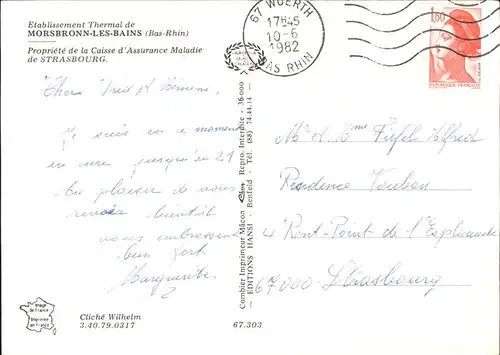 Etablissement Thermal de
MORSBRONN-LES-BAINS (Bas-Rhin)
Propriété de la Caisse d'Assurance Maladie
de STRASBOURG.
67 WOERTH
17H45
10-6
1982
BAS RHIN
1,60
REPUBLIQUE FRANÇAISE
Chers et
Je suis en ce moment
en cure jusqu'au 21
Au plaisir de vous
revoir bientôt
vous embrassent
bien fort
Marguerite
Combier Imprimeur Mâcon Repro. Interdite - 36-000
EDITIONS HANSI - Benfeld - Tél. (88) 74.44.14
Mr et Mme Alfred
Résidence Vauban
4 Ront-Point de l'Esplanade
67000 Strasbourg
Image
de France
Imprimée
en France
Cliché Wilhelm
3.40.79.0317
67.303